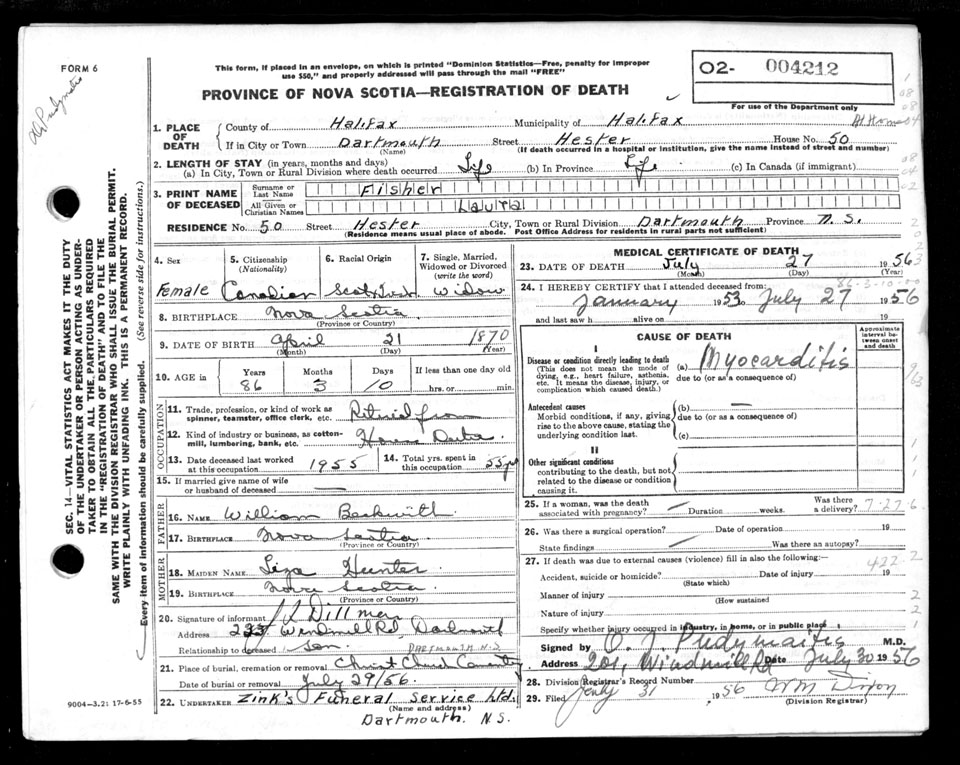 FORM 6
This form, if placed in an envelope, on which is printed "Dominion Statistics—Free, penalty for improper
use $50," and properly addressed will pass through the mail "FREE"
PROVINCE OF NOVA SCOTIA—REGISTRATION OF DEATH
O2- 004212
For use of the Department only
SEC. 14 - VITAL STATISTICS ACT MAKES IT THE DUTY
OF THE UNDERTAKER OR PERSON ACTING AS UNDER-
TAKER TO OBTAIN ALL THE PARTICULARS REQUIRED
IN THE "REGISTRATION OF DEATH" AND TO FILE THE
SAME WITH THE DIVISION REGISTRAR WHO SHALL ISSUE THE BURIAL PERMIT.
WRITE PLAINLY WITH UNFADING INK. THIS IS A PERMANENT RECORD.
Every item of information should be carefully supplied. (See reverse side for instructions.)
1. PLACE OF DEATH
County of Halifax Municipality of Halifax
If in City or Town Dartmouth Street Hester House No. 50
(Name) (If death occurred in a hospital or institution, give the name instead of street and number)
2. LENGTH OF STAY (in years, months and days)
(a) In City, Town or Rural Division where death occurred Life (b) In Province Life (c) In Canada (if immigrant)
3. PRINT NAME OF DECEASED
Surname or Last Name Fisher
All Given or Christian Names Laura
RESIDENCE No. 50 Street Hester City, Town or Rural Division Dartmouth Province N.S.
(Residence means usual place of abode. Post Office Address for residents in rural parts not sufficient)
4. Sex Female
5. Citizenship (Nationality) Canadian
6. Racial Origin
7. Single, Married, Widowed or Divorced (write the word) Widow
8. BIRTHPLACE Nova Scotia
(Province or Country)
9. DATE OF BIRTH April 21 1870
(Month) (Day) (Year)
10. AGE in Years Months Days If less than one day old
86 3 10 hrs. or min.
OCCUPATION
11. Trade, profession, or kind of work as spinner, teamster, office clerk, etc. Retired from
12. Kind of industry or business, as cotton-mill, lumbering, bank, etc. House
13. Date deceased last worked at this occupation 1955
14. Total yrs. spent in this occupation 55
15. If married give name of wife or husband of deceased —
FATHER
16. NAME William Beckwith
17. BIRTHPLACE Nova Scotia
(Province or Country)
MOTHER
18. MAIDEN NAME Liza Hunter
19. BIRTHPLACE Nova Scotia
(Province or Country)
20. Signature of informant Dillman
Address Windmill Rd,
Relationship to deceased son DARTMOUTH N.S.
21. Place of burial, cremation or removal Christ Church
Date of burial or removal July 29/56.
22. UNDERTAKER Zink's Funeral Service Ltd.
(Name and address)
Dartmouth. N.S.
9004—3.21 17-6-55
MEDICAL CERTIFICATE OF DEATH
23. DATE OF DEATH July 27 1956
(Month) (Day) (Year)
24. I HEREBY CERTIFY that I attended deceased from:
January 1953 to July 27 1956
and last saw h alive on 19
CAUSE OF DEATH
Approximate interval between onset and death
I
Disease or condition directly leading to death
(This does not mean the mode of dying, e.g., heart failure, asthenia, etc. It means the disease, injury, or complication which caused death.)
(a) Myocarditis
due to (or as a consequence of)
Antecedent causes
Morbid conditions, if any, giving rise to the above cause, stating the underlying condition last.
(b) —
due to (or as a consequence of)
(c)
II
Other significant conditions
contributing to the death, but not related to the disease or condition causing it.
25. If a woman, was the death associated with pregnancy? Duration weeks. Was there a delivery?
7-27-6
26. Was there a surgical operation? Date of operation 19
State findings Was there an autopsy?
27. If death was due to external causes (violence) fill in also the following:
422 2
Accident, suicide or homicide? Date of injury 19
(State which)
Manner of injury
(How sustained
Nature of injury
Specify whether injury occurred in industry, in home, or in public place
Signed by O. J. Pudymaitis M.D.
Address 201, Windmill Rd Date July 30 1956
28. Division Registrar's Record Number
29. Filed July 31 1956 W M Dixon
(Division Registrar)